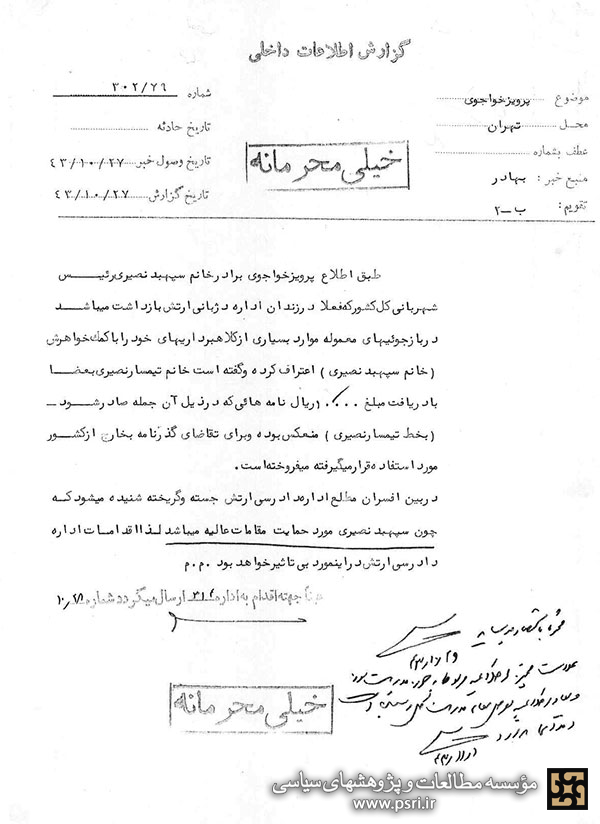 گزارش اطلاعات داخلی
موضوع پرویزخواجوی
محل تهران
عطف بشماره
منبع خبر: بهادر
تقویم: ب-۲
شماره ۳۰۲/۷۶
تاریخ حادثه
تاریخ وصول خبر ۴۳/۱۰/۲۷
تاریخ گزارش ۴۳/۱۰/۲۷
خیلی محرمانه
طبق اطلاع پرویزخواجوی برادر خانم سپهبد نصیری رئیس
شهربانی کل کشور که فعلا در زندان اداره دژبانی ارتش بازداشت میباشد
در بازجوئیهای معموله موارد بسیاری از کلاهبرداریهای خود را با کمک خواهرش
(خانم سپهبد نصیری) اعتراف کرده و گفته است خانم تیمسار نصیری بعضا
با دریافت مبلغ ۱۰۰۰۰ ریال نامه هائی که در ذیل آن جمله صادر شود-
(بخط تیمسار نصیری) منعکس بوده و برای تقاضای گذرنامه بخارج از کشور
مورد استفاده قرار میگیرفته میفروخته است.
در بین افسران مطلع اداره دادرسی ارتش جسته و گریخته شنیده میشود که
چون سپهبد نصیری مورد حمایت مقامات عالیه میباشد لذا اقدامات اداره
دادرسی ارتش در اینمورد بی تاثیر خواهد بود م.م.
جهته اقدام به اداره ۳۱۲ ارسال میگردد شماره
خیلی محرمانه
مؤسسه مطالعات و پژوهشهای سیاسی
www.psri.ir